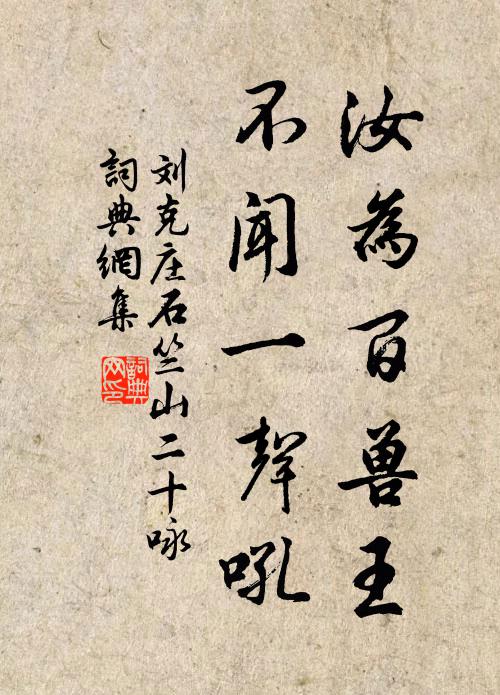 汝為百兽王
不闻一聲吼
刘克庄石竺山二十咏
詞典網集
詞典網印